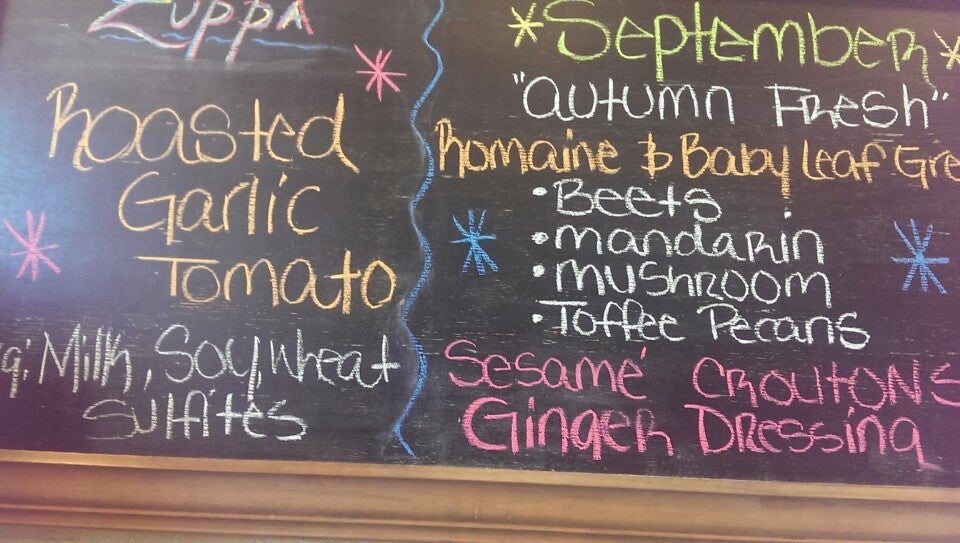 Zuppa
Roasted
Garlic
Tomato
Milk, Soy, Wheat
Sulfites
*September*
"Autumn Fresh"
Romaine & Baby Leaf Gre
• Beets
• mandarin
• mushroom
• Toffee Pecans
Sesamé Croutons
Ginger Dressing